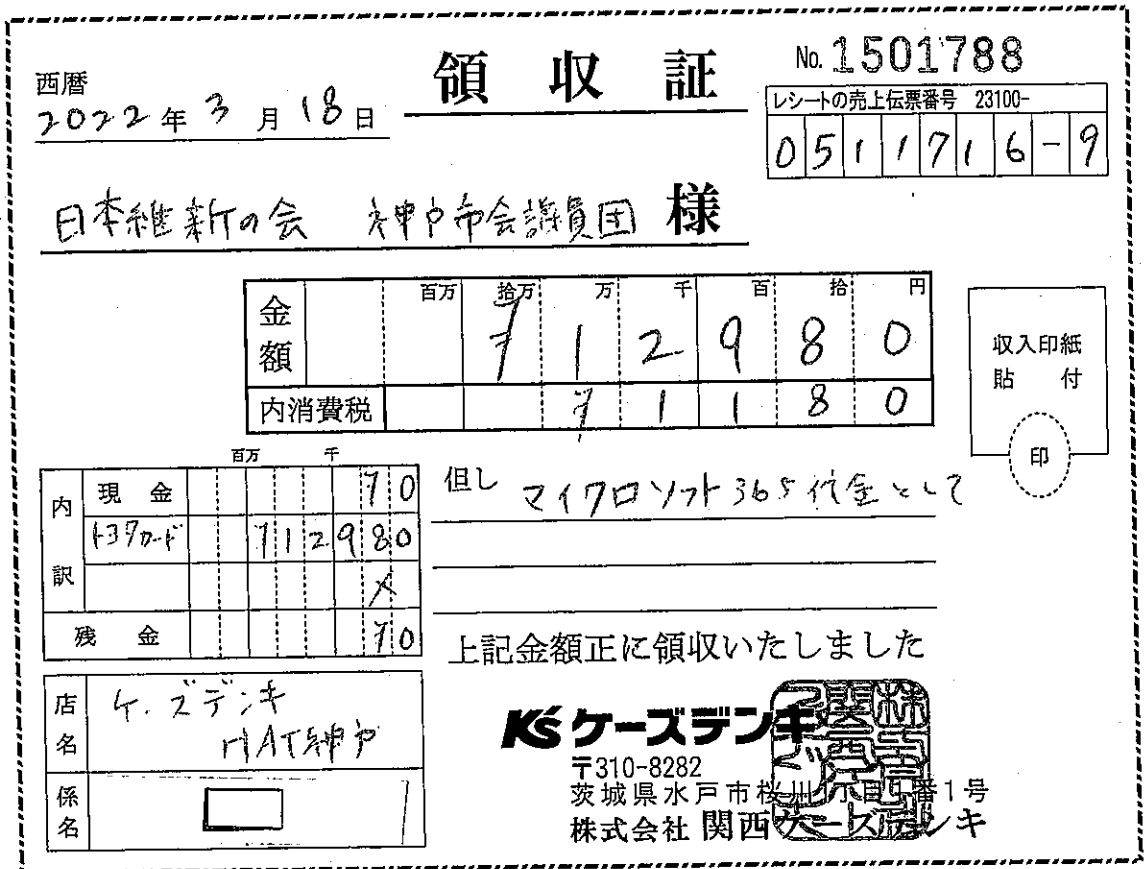 領収証
No. 1501788
西暦
2022年3月18日
レシートの売上伝票番号 23100-
0511716-9
日本維新の会 神戸市会議員団 様
百万 拾万 万 千 百 拾 円
金額 ¥12980
内消費税 ¥1180
百万 千
内訳
現金 ¥0
トヨタカード ¥12980
残金 ¥0
但し マイクロソフト365代金として
上記金額正に領収いたしました
収入印紙
貼付
印
店名 ケーズデンキ
HAT神戸
係名
K's ケーズデンキ
〒310-8282
茨城県水戸市桜川 丁目 番1号
株式会社 関西ケーズデンキ